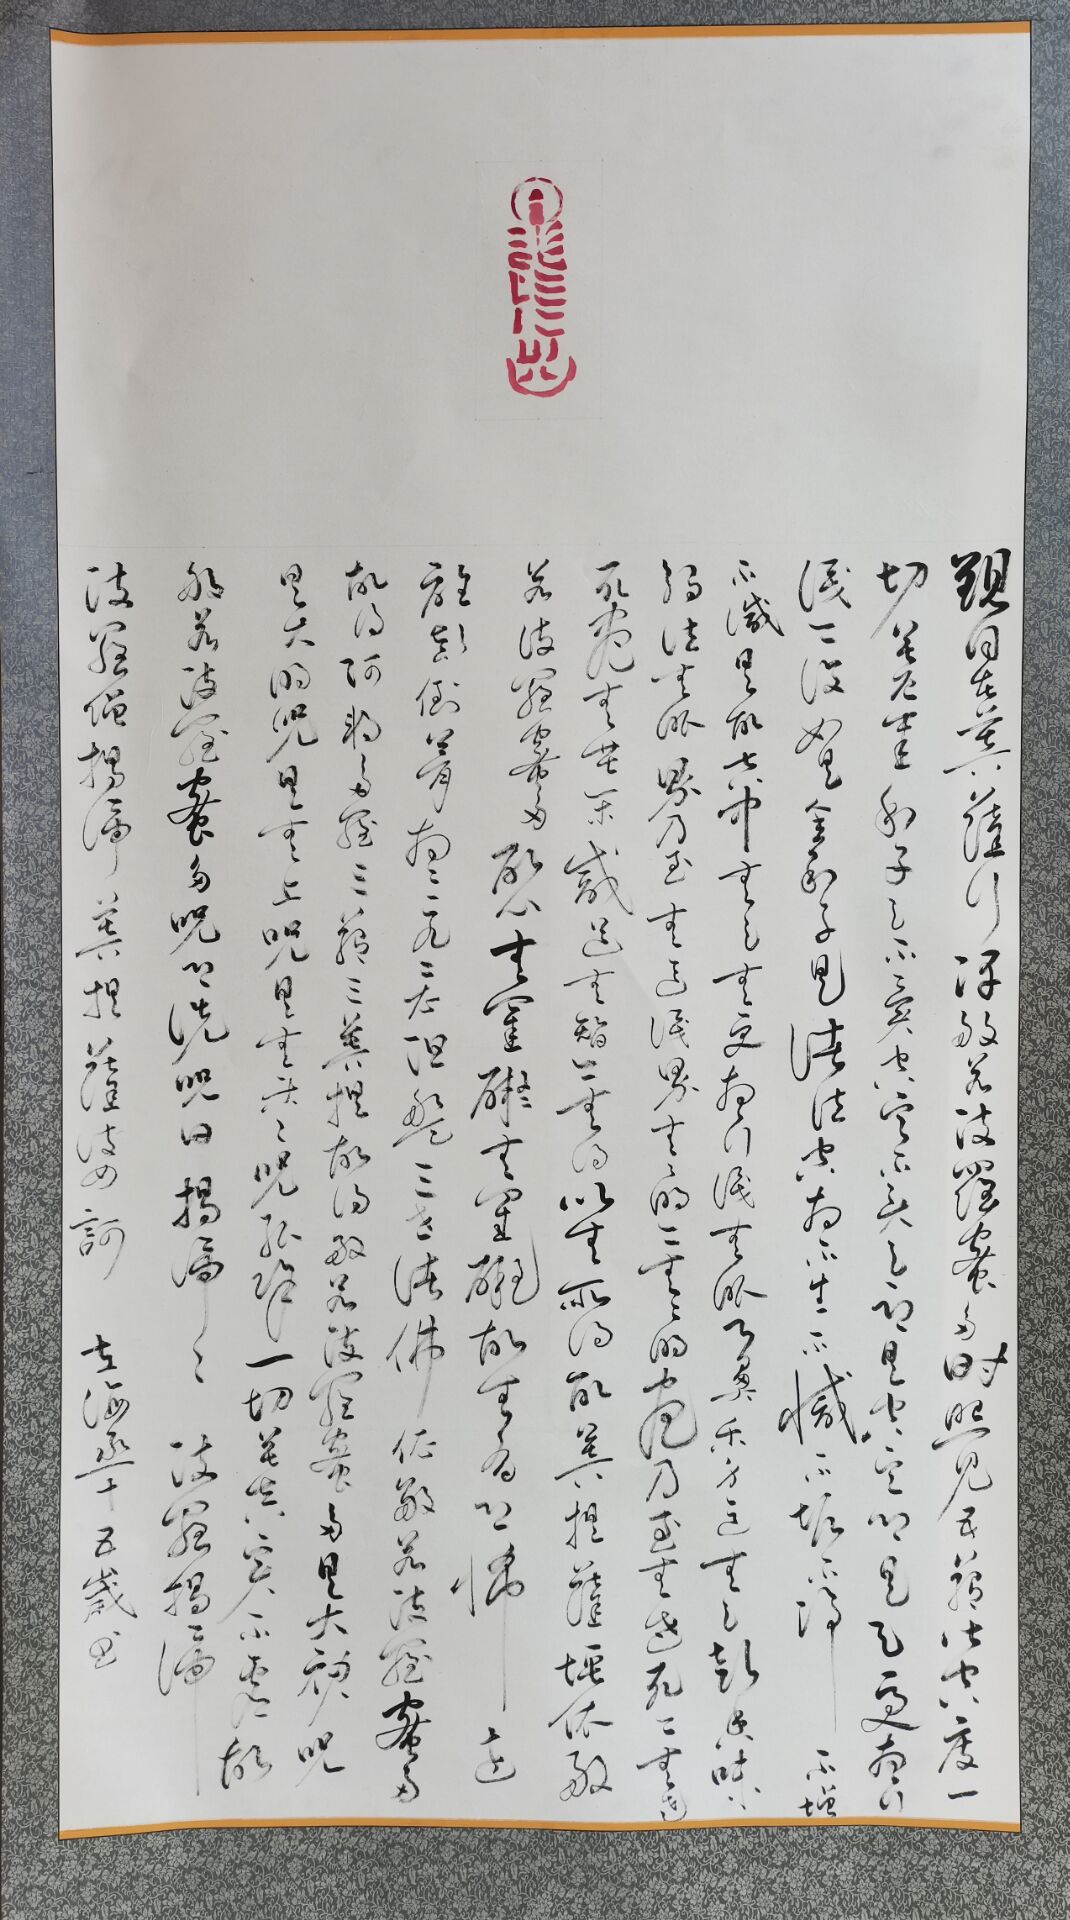 觀自在菩薩行深般若波羅蜜多時照見五蘊皆空度一
切苦厄舍利子色不異空空不異色色即是空空即是色受想行
識亦復如是舍利子是諸法空相不生不滅不垢不淨不增
不減是故空中無色無受想行識無眼耳鼻舌身意無色聲香味
觸法無眼界乃至無意識界無無明亦無無明盡乃至無老死亦無老
死盡無苦集滅道無智亦無得以無所得故菩提薩埵依般
若波羅蜜多故心無罣礙無罣礙故無有恐怖遠
離顛倒夢想究竟涅槃三世諸佛依般若波羅蜜多
故得阿耨多羅三藐三菩提故知般若波羅蜜多是大神咒
是大明咒是無上咒是無等々咒能除一切苦真實不虛故
說般若波羅蜜多咒即說咒曰揭諦々々波羅揭諦
波羅僧揭諦菩提薩婆訶 十五歲書